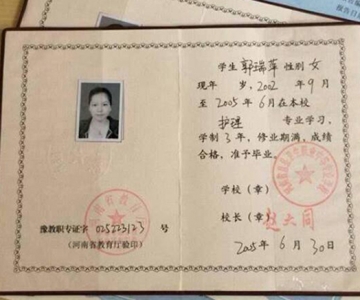 学生 郭瑞萍 性别 女
现年 岁, 2002 年 9 月
至 2005 年 6 月在本校
护理 专业学习,
学制 3 年, 修业期满, 成绩
合格, 准予毕业。
学校(章)
校长(章) 赵大同
豫教职专证字 025223123 号
(河南省教育厅验印)
2005 年 6 月 30 日